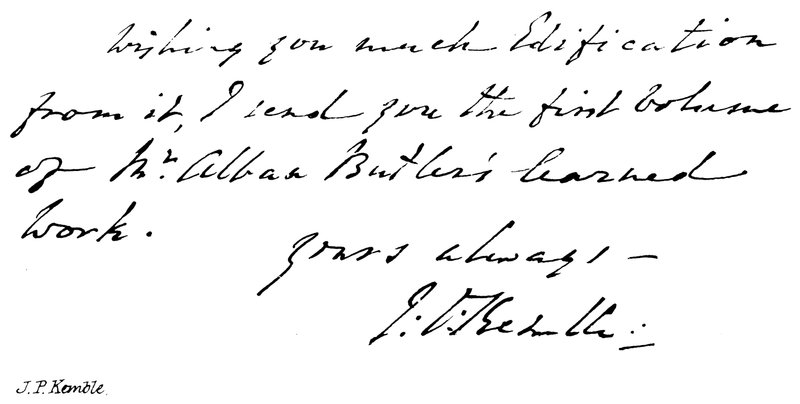 Wishing you much Edification
from it, I send you the first Volume
of Mr. Alban Butler's learned
Work.
yours always —
J: P: Kemble:
J. P. Kemble.